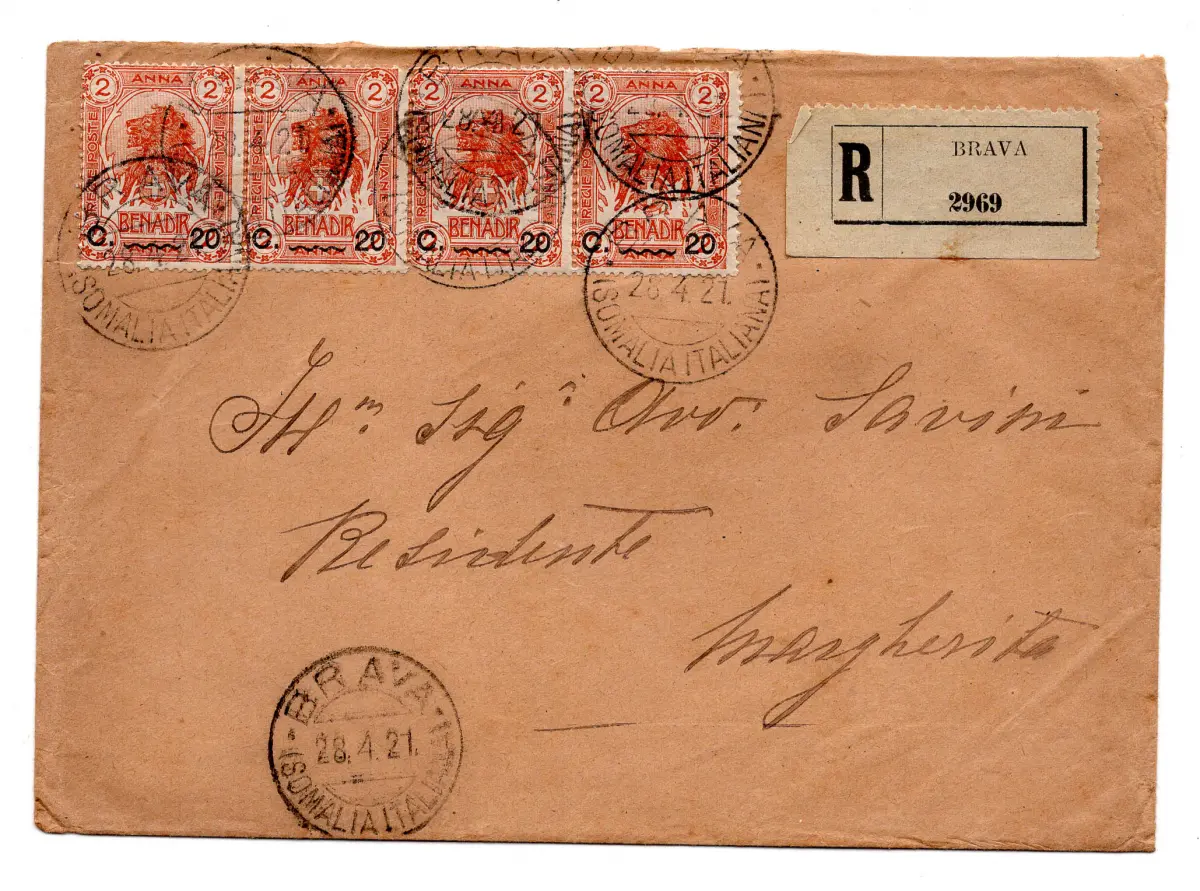 2 ANNA 2
REGIE POSTE
ITALIANE
BENADIR
C. 20
ANNA
2 ANNA 2
REGIE POSTE
ITALIANE
BENADIR
C. 20
ANNA
2 ANNA 2
REGIE POSTE
BENADIR
C. 20
2 ANNA 2
REGIE POSTE
BENADIR
C. 20
28.4.21
(SOMALIA ITALIANA)
28.4.21.
(SOMALIA ITALIANA)
R BRAVA
2969
Ill.m Sig. Avv. Savini
Residente
Margherita
BRAVA
28.4.21.
(SOMALIA ITALIANA)